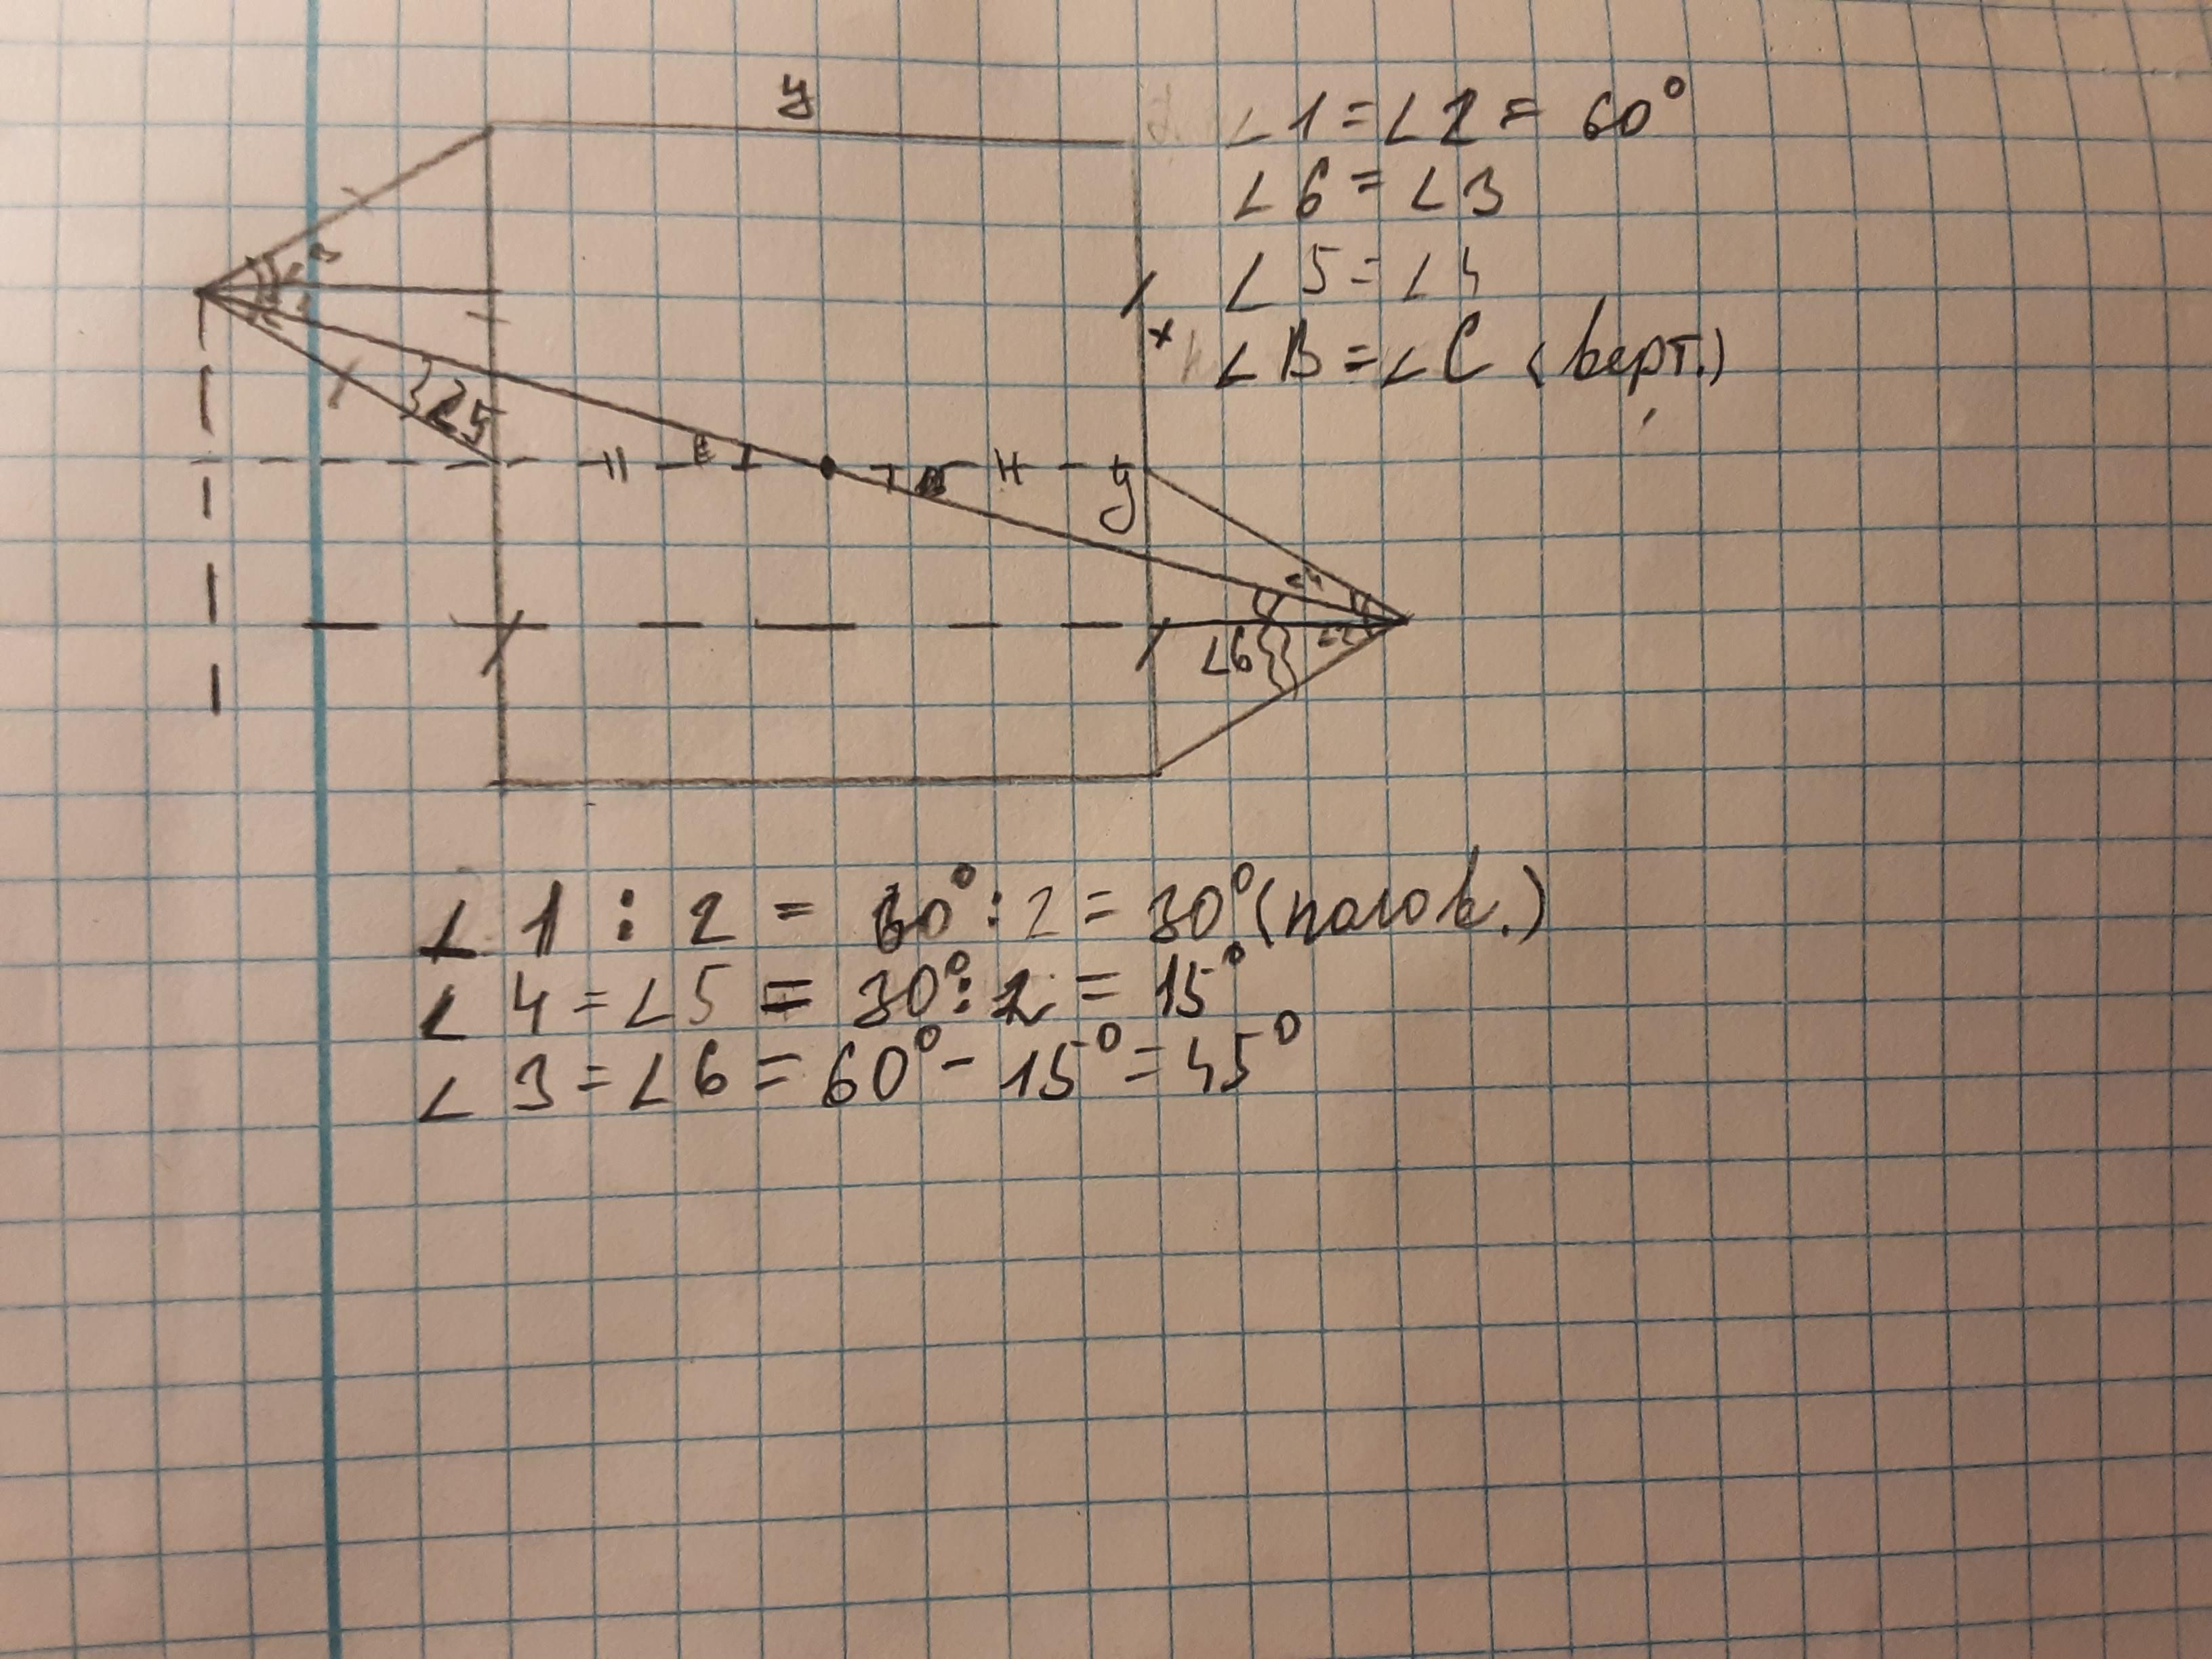 y
∠1 = ∠2 = 60°
∠6 = ∠3
∠5 = ∠4
x ∠B = ∠C (верт.)
∠3
∠5
y
∠4
∠6 ∠2
∠1 : 2 = 60° : 2 = 30° (полов.)
∠4 = ∠5 = 30° : 2 = 15°
∠3 = ∠6 = 60° - 15° = 45°